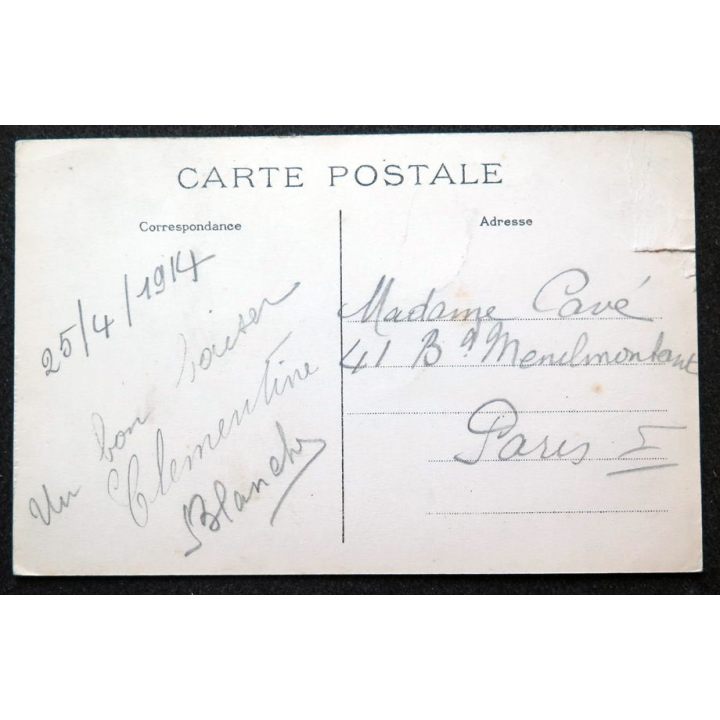 CARTE POSTALE
Correspondance
Adresse
25/4/1914
Un bon baiser
Clementine
Blanche
Madame Cavé
41 Bd Menilmontant
Paris